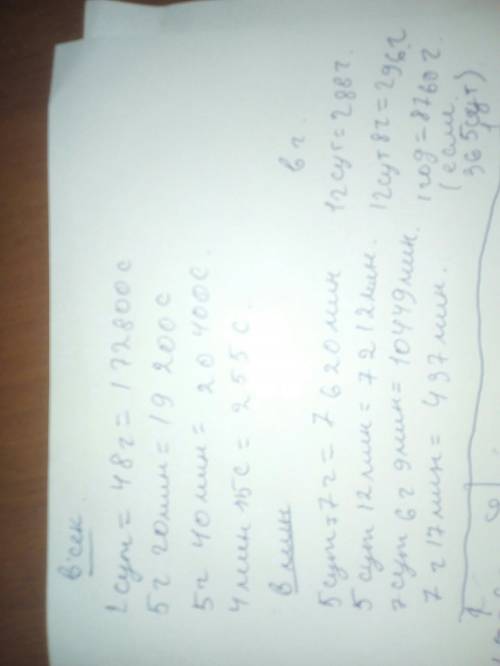 в сек
2 сут = 48 г = 172800 с
5 г 20 мин = 19 200 с
5 г 40 мин = 20 400 с.
4 мин 15 с = 255 с.
в мин
5 сут 7 г = 7 620 мин
5 сут 12 мин = 7212 мин.
7 сут 6 г 9 мин = 10449 мин.
7 г 17 мин = 437 мин.
в г.
12 сут = 288 г.
12 сут 8 г = 296 г
1 год = 8760 г.
(если.
365 сут)